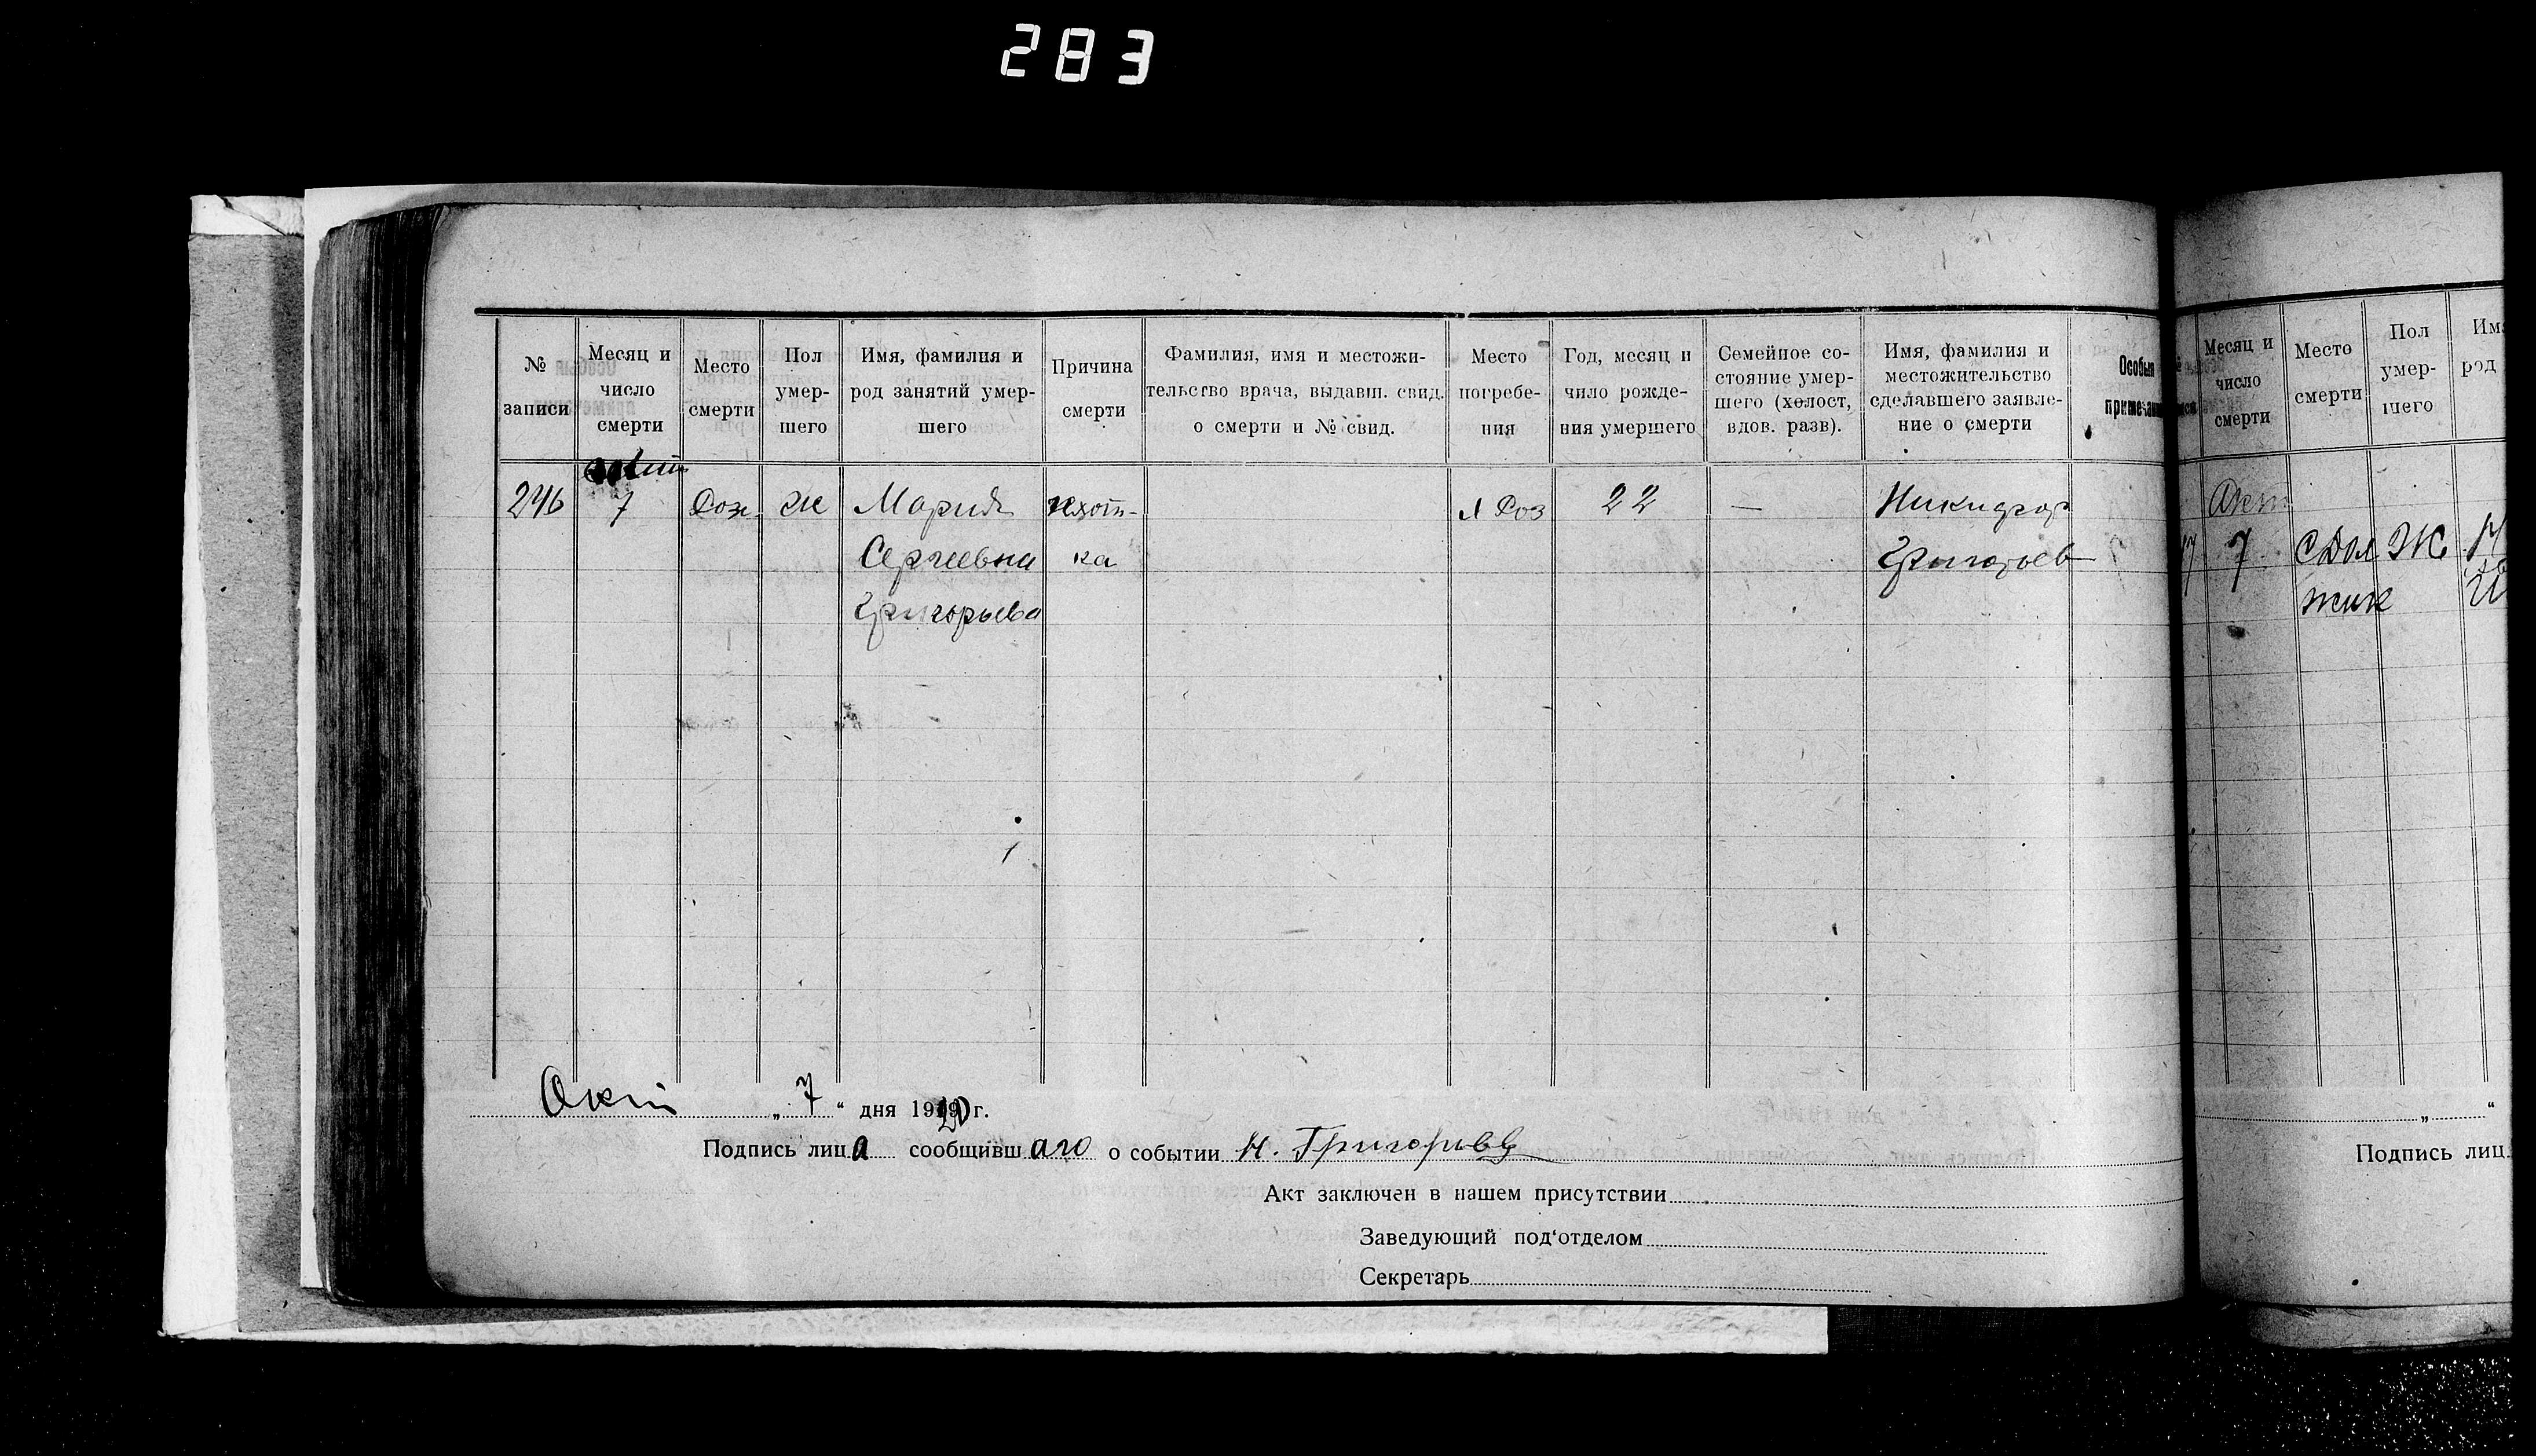 283
№ записи
Месяц и число смерти
Место смерти
Пол умер- шего
Имя, фамилия и род занятий умер- шего
Причина смерти
Фамилия, имя и местожи- тельство врача, выдавш. свид. о смерти и № свид.
Место погребе- ния
Год, месяц и чило рожде- ния умершего
Семейное со- стояние умер- шего (холост, вдов. разв).
Имя, фамилия и местожительство сделавшего заявле- ние о смерти
Особыя
246
7
ж
Мария
Сергеевна
Григорьева
чахот-
ка
22
—
Никифор
Григорьев
Окт „ 7 “ дня 1920 г.
Подпись лица сообщившаго о событии Н. Григорьев
Акт заключен в нашем присутствии
Заведующий под‘отделом
Секретарь
Месяц и число смерти
Место смерти
Пол умер- шего
Им
род
Окт
7
Ж
„ “
Подпись лиц